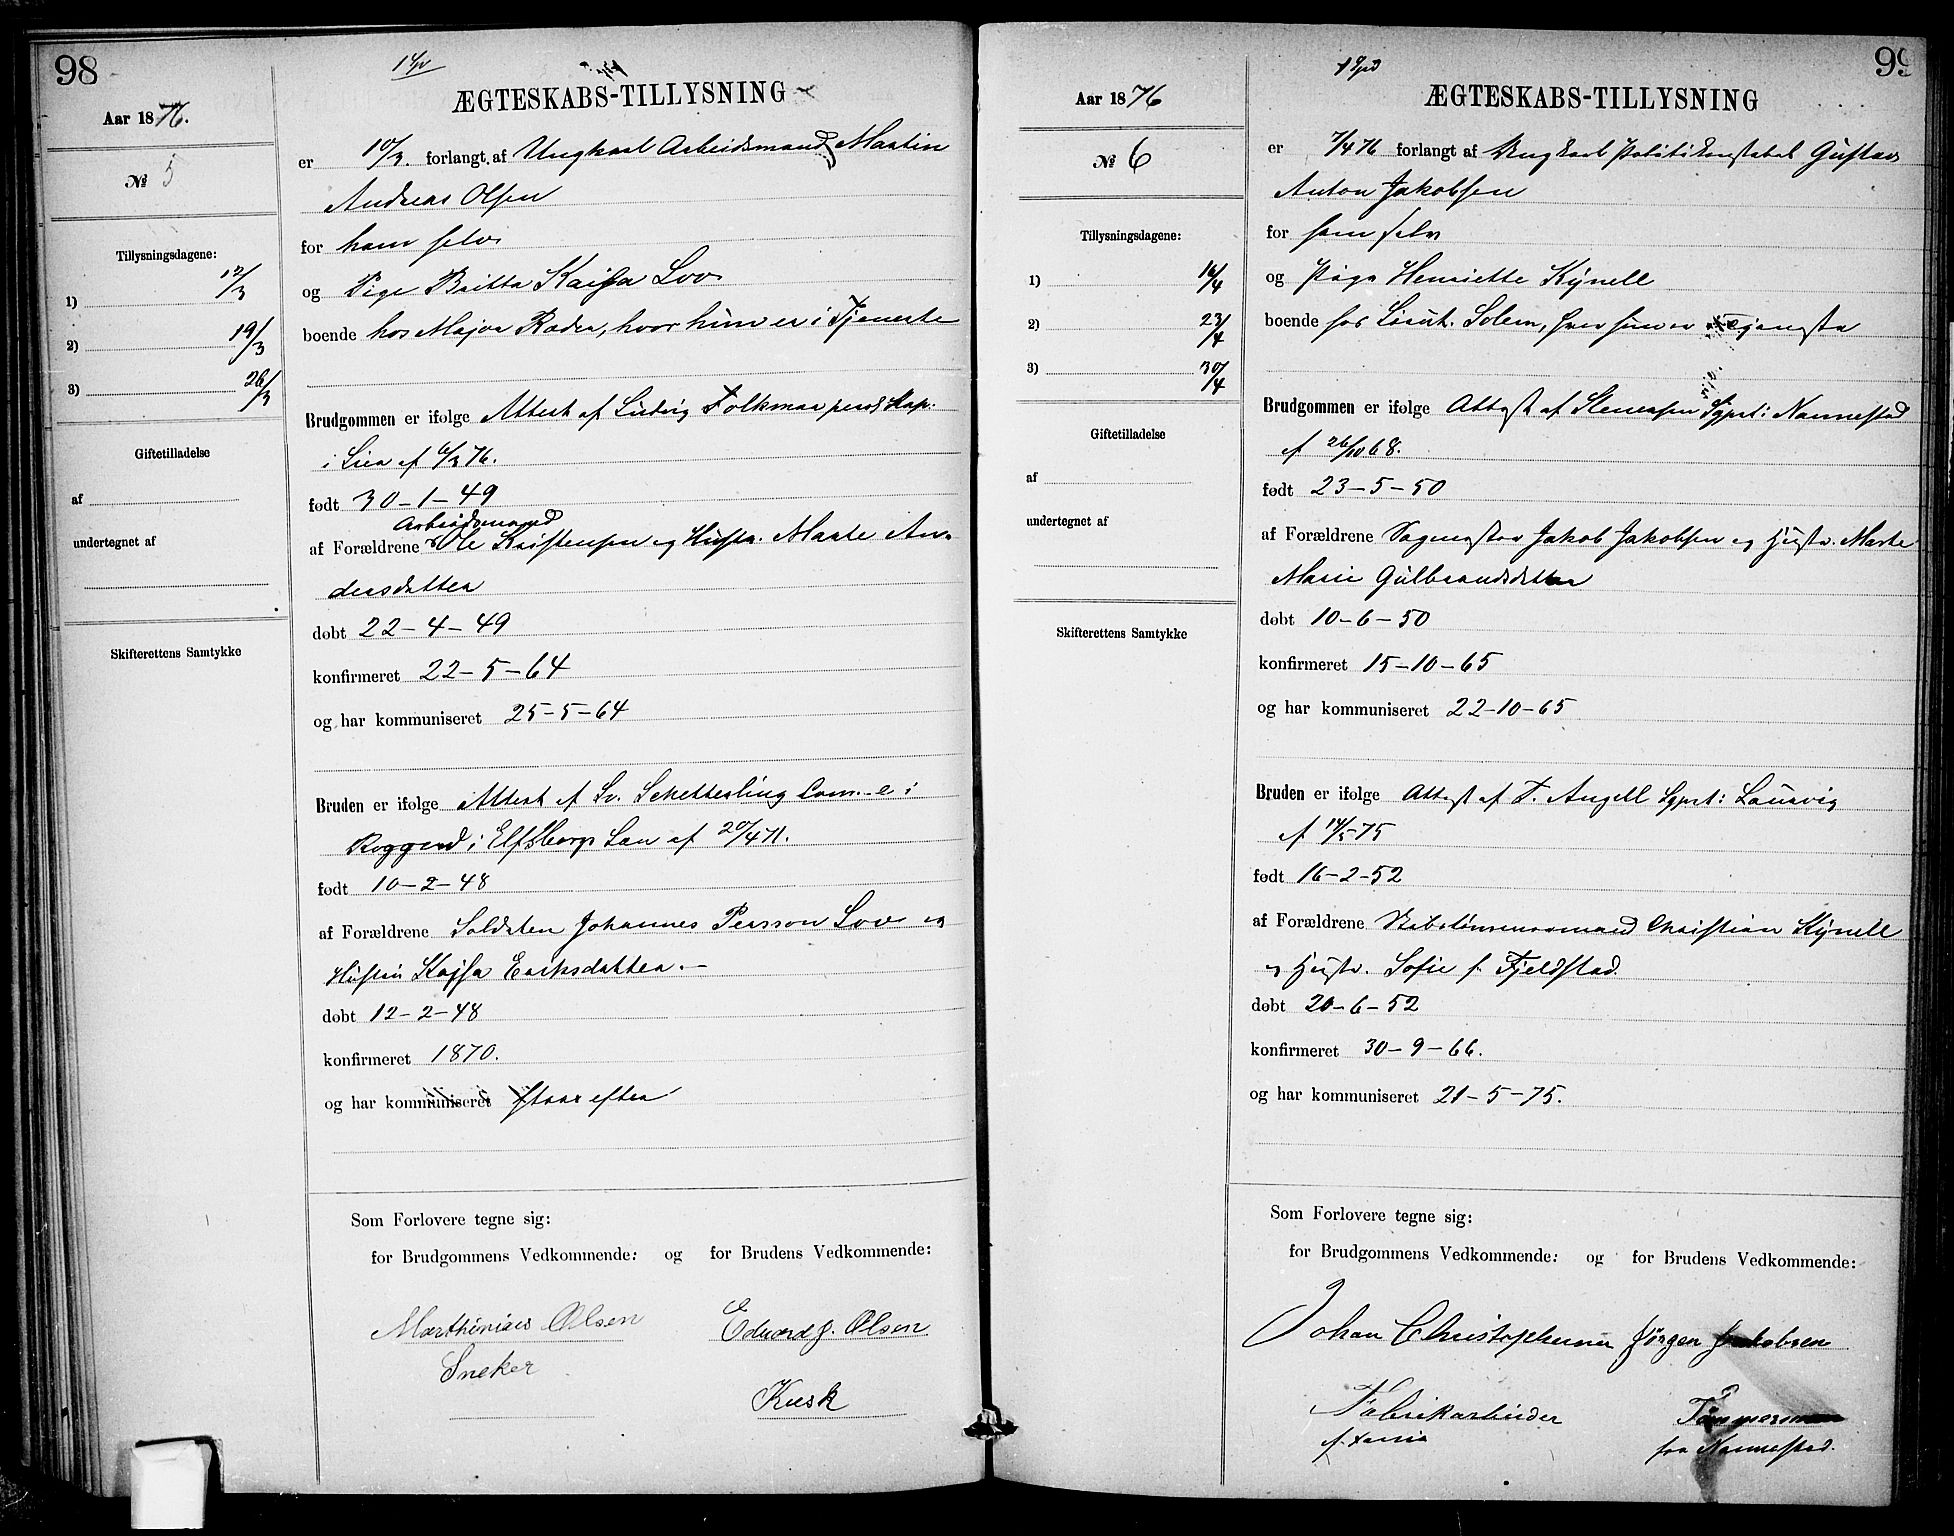 98
Aar 1876.
№ 5
Tillysningsdagene:
1) 12/3
2) 19/3
3) 26/3
Giftetilladelse
af
undertegnet af
Skifterettens Samtykke
ÆGTESKABS-TILLYSNING
er 10/3. forlangt af Ungkarl Arbeidsmand Martin
Andreas Olsen
for ham selv
og Pige Britta Kaisa Lov
boende hos Major Roder, hvor hun er i Tjeneste
Brudgommen er ifølge Attest af Ludvig Folkmar pers. Kap.
i Lier af 6/3 76.
født 30-1-49
Arbeidsmand
af Forældrene Ole Kristensen og Hustr. Marte An-
dersdatter
døbt 22-4-49
konfirmeret 22-5-64
og har kommuniseret 25-5-64
Bruden er ifølge Attest af Sv. Schetterling Com. i
i Elfsborgs Län af 20/4 71.
født 10-2-48
af Forældrene Soldaten Johannes Persson Lov og
Hustru Kajsa Eriksdatter.-
døbt 12-2-48
konfirmeret 1870.
og har kommuniseret staar efter
Som Forlovere tegne sig:
for Brudgommens Vedkommende: og for Brudens Vedkommende:
Marthinius Olsen Edvard J. Olsen
Sneker
Kusk
99
Aar 1876
№ 6
Tillysningsdagene:
1) 16/4
2) 23/4
3) 30/4
Giftetilladelse
af
undertegnet af
Skifterettens Samtykke
ÆGTESKABS-TILLYSNING
er 7/4 76 forlangt af Ungkarl Politikonstabel Gustav
Anton Jakobsen
for ham selv
og Pige Henriette Kynell
boende hos Lieut. Solem, hvor hun er i Tjeneste
Brudgommen er ifølge Attest af Stenersen Sgprt: Nannestad
af 26/10 68.
født 23-5-50
af Forældrene Jakob Jakobsen og Hustr. Marte
Marie Gulbrandsdatter
døbt 10-6-50
konfirmeret 15-10-65
og har kommuniseret 22-10-65
Bruden er ifølge Attest af F. Angell Sgprt: Laurvig
af 14/5 75
født 16-2-52
af Forældrene Christian Kynell
og Hustr. Sofie f. Fjeldstad
døbt 20-6-52
konfirmeret 30-9-66.
og har kommuniseret 21-5-75.
Som Forlovere tegne sig:
for Brudgommens Vedkommende: og for Brudens Vedkommende:
Johan Christophersen Jörgen Jakobsen
Fabrikarbeider Tømmermann
af Xania fra Nannestad.